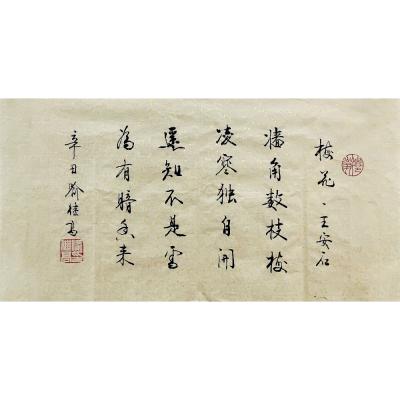 梅花、王安石
墙角数枝梅
凌寒独自开
遥知不是雪
为有暗香来
辛丑 桂高